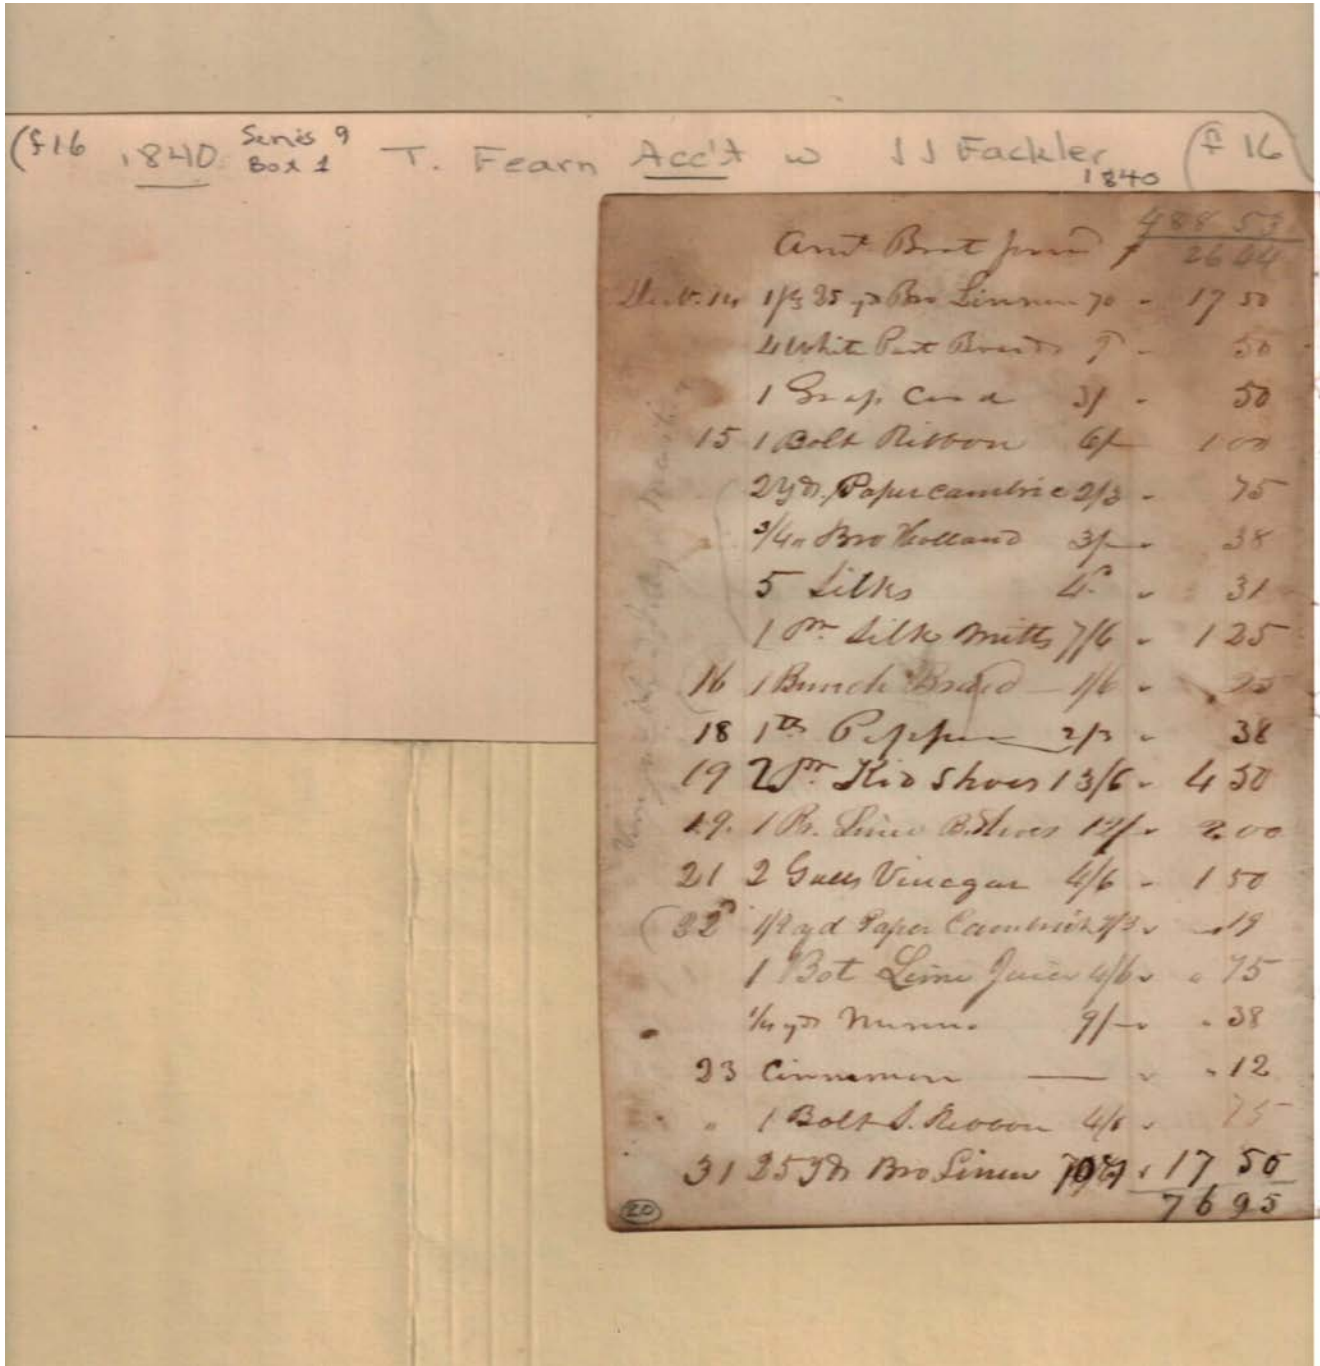 (f16 1840 Series 9 Box 1 T. Fearn Acc't w J J Fackler 1840 (f 16
488 53
Amt Brot forwd $ 26 44
14 25 yds Bro Linnen 70 " 17 50
4 White Boards 9 " 50
1 Cord 3/ " 50
15 1 Bolt Ribbon 6/ 1 00
2 yds. Paper cambric 2/3 " 75
3/4 " Bro Holland 3/ " 38
5 Silks 4d " 31
1 Pr. Silk Mitts 7/6 " 1 25
16 1 Bunch Braid 1/6 " 25
18 1 lb Pepper 2/3 " 38
19 2 Pr. Kid Shoes 13/6 " 4 50
19. 1 Pr. B. Shoes 12/ " 2 00
21 2 Galls Vinegar 4/6 " 1 50
(22 1/2 yd Paper Cambrick 2/3 " 19
1 Bot Lime Juice 4/6 " " 75
1/4 yds 9/ " " 38
23 Cinnamon — " " 12
" 1 Bolt S. Ribbon 4/6 " 75
31 25 yds Bro Linen 70 " 17 50
76 95
20